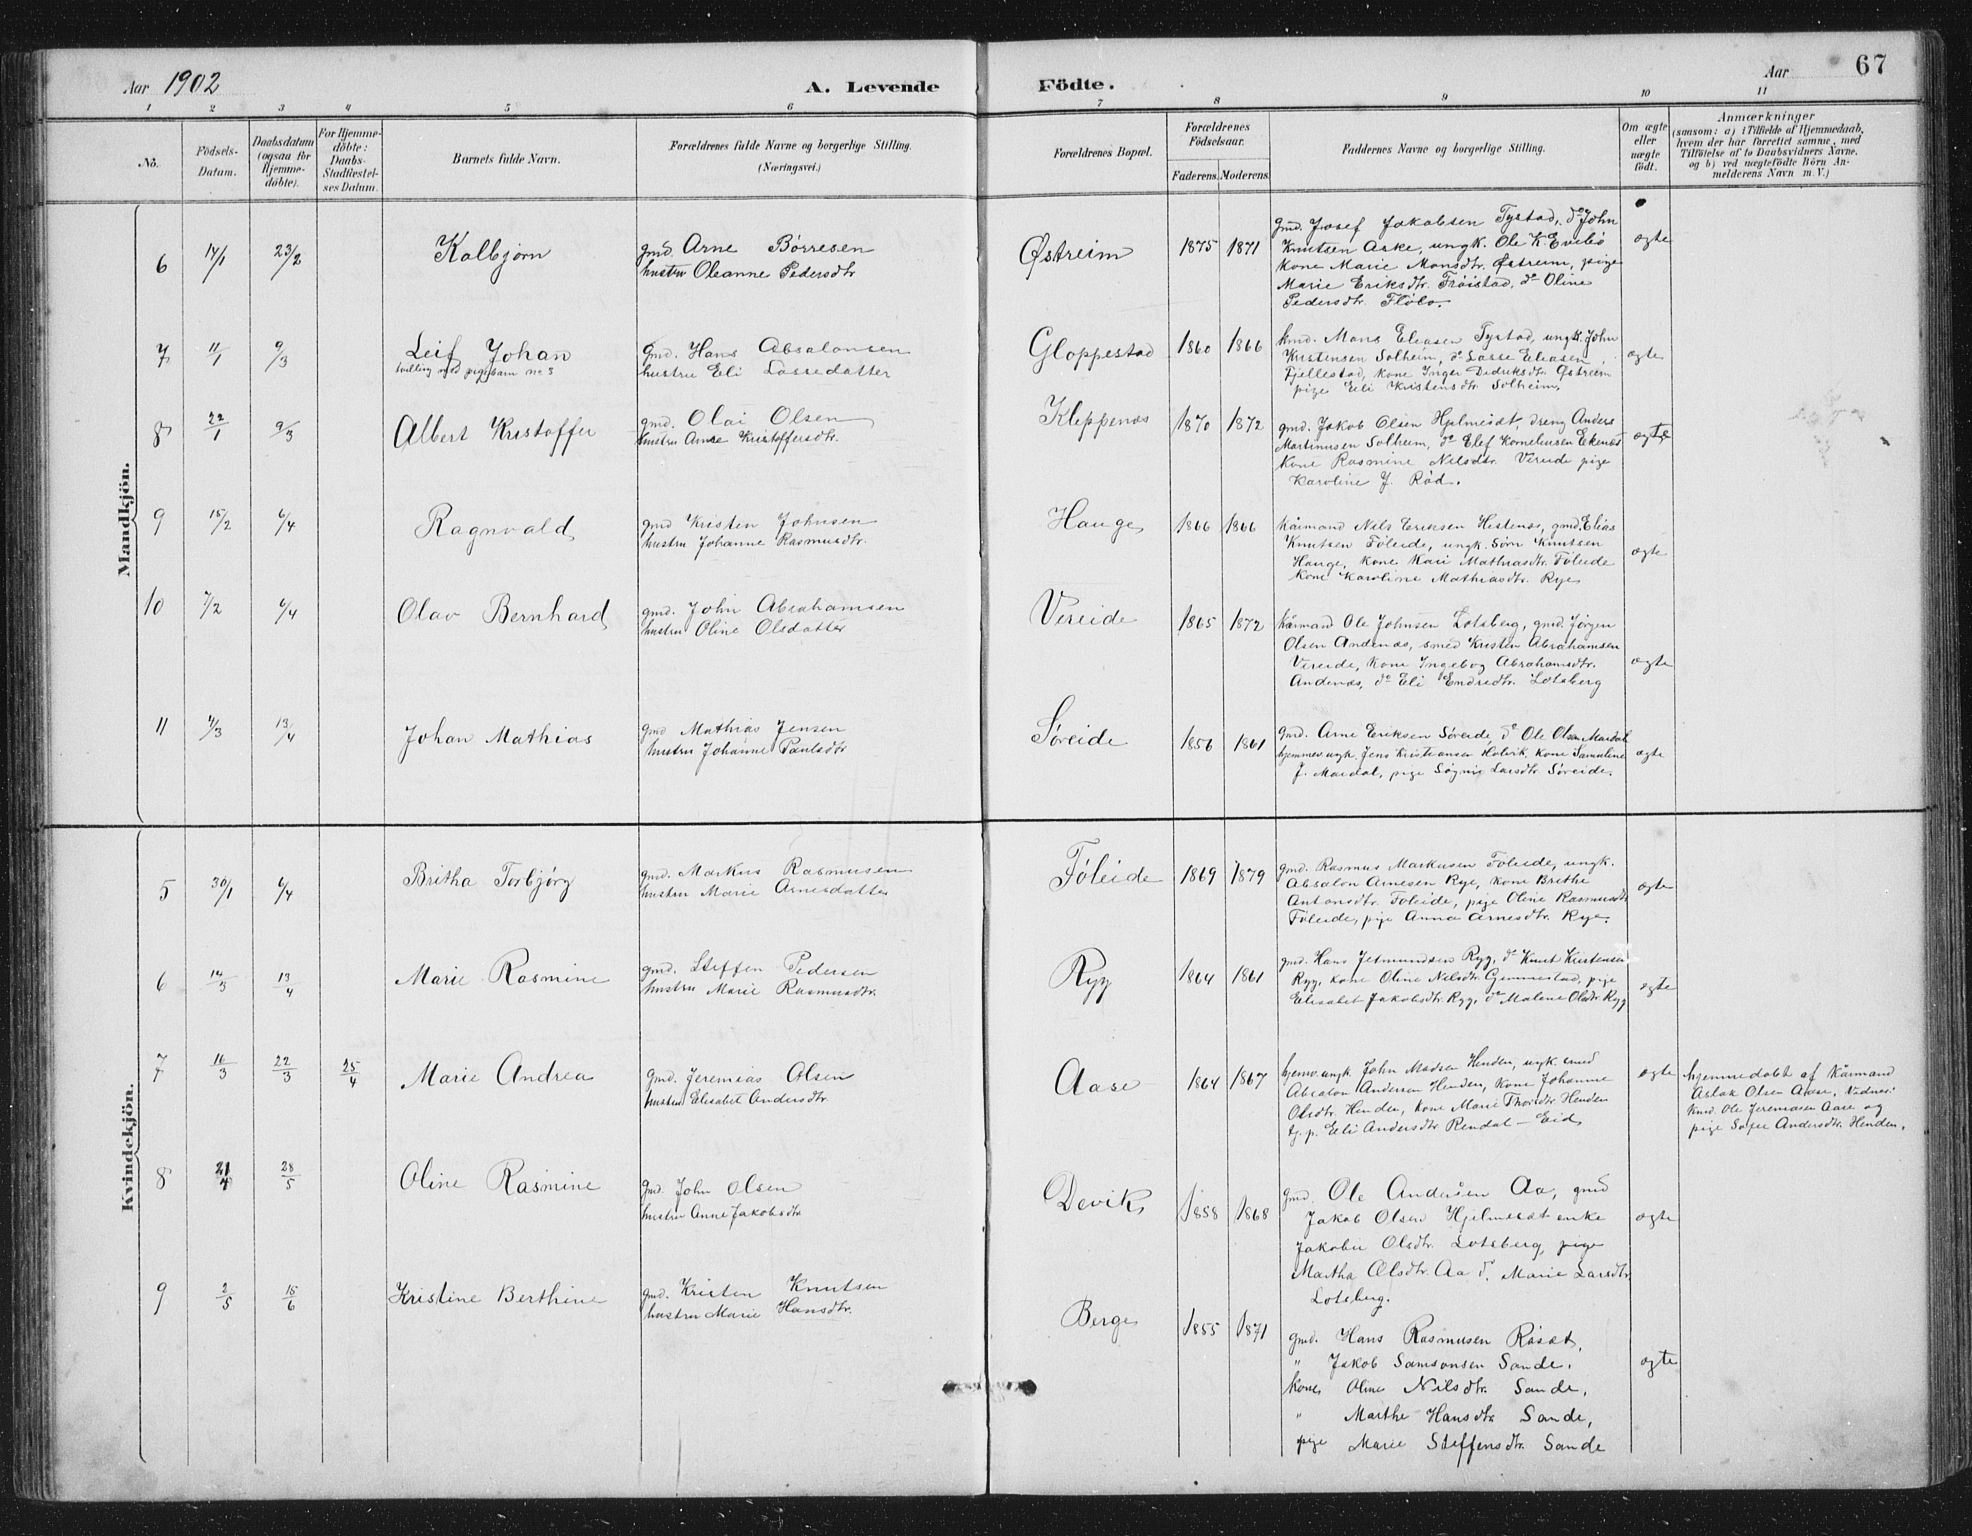 Aar 1902
A. Levende Födte.
Aar
67
1 2 3 4 5 6 7 8 9 10 11
No.
Födsels-Datum.
Daabsdatum (ogsaa för Hjemme-döbte).
For Hjemme-döbte: Daabs-Stadfæstel-ses Datum.
Barnets fulde Navn.
Forældrenes fulde Navne og borgerlige Stilling. (Næringsvei.)
Forældrenes Bopæl.
Forældrenes Födselsaar.
Faderens. Moderens.
Faddernes Navne og borgerlige Stilling.
Om ægte eller uægte födt.
Anmærkninger
(saasom: a) i Tilfælde af Hjemmedaab,
hvem der har forrettet samme, med
Tilföielse af to Daabsvidners Navne,
og b) ved uægtefödte Börn An-
melderens Navn m. V.)
Mandkjön.
6 14/1 23/2 Kolbjørn
gmd. Arne Børresen
hustru Oleanne Pedersdtr
Østreim 1875 1871
gmd. Josef Jakobsen Tystad, do John
Knutsen Aske, ungk. Ole K. Evebø
kone Marie Monsdtr. Østreim, pige
Marie Eriksdtr. Trøistad, do Oline
Pedersdtr. Flølo.
ægte
7 11/1 9/3 Leif Johan
tvilling med pigebarn no 3
gmd. Hans Absalonsen
hustru Eli Lassedatter
Gloppestad 1860 1866
kmd. Mons Eliasen Tystad, ungk. John
Kristensen Solheim, do Lasse Eliasen
Fjellestad, kone Inger Didriksdtr. Østreim
pige Eli Kristensdtr. Solheim.
ægte
8 22/1 9/3 Albert Kristoffer
gmd. Olai Olsen
hustru Anne Kristoffersdtr.
Kleppenæs 1870 1872
gmd. Jakob Olsen Hjelmesæt, dreng Anders
Martinusen Solheim, do Elef Korneliusen Ekenæs
kone Rasmine Nilsdtr. Vereide pige
Karoline J. Rød.
ægte
9 15/2 6/4 Ragnvald
gmd Kristen Johnsen
hustru Johanne Rasmusdtr.
Hauge 1866 1866
Kårmand Nils Eriksen Hestenæs, gmd. Elias
Knutsen Føleide, ungk. Sørn Knutsen
Hauge, kone Kari Mathiasdtr. Føleide
kone Karoline Mathiasdtr. Rye
ægte
10 7/2 6/4 Olav Bernhard
gmd. John Abrahamsen
hustru Oline Olsdatter
Vereide 1865 1872
Kårmand Ole Johnsen Lotsberg, gmd. Jørgen
Olsen Andenæs, smed Kristen Abrahamsen
Vereide, kone Ingebog Abrahamsdtr.
Andenæs, do Eli Endredtr. Lotsberg
ægte
11 4/3 13/4 Johan Mathias
gmd Mathias Jensen
hustru Johanne Paulsdtr
Søreide 1856 1861
gmd. Arne Eriksen Søreide, do Ole Olsen Mardal
hjemmev. ungk. Jens Kristiansen Holvik, kone Samueline
J. Mardal, pige Søgni Larsdtr. Søreide.
ægte
Kvindekjön.
5 30/1 6/4 Britha Torbjørg
gmd. Markus Rasmusen
hustru Marie Arnesdatter
Føleide 1869 1879
gmd. Rasmus Markusen Føleide, ungk.
Absalon Arnesen Rye, kone Brithe
Antonsdtr. Føleide, pige Oline Rasmusdtr
Føleide, pige Anna Arnesdtr. Rye.
ægte
6 14/3 13/4 Marie Rasmine
gmd. Steffen Pedersen
hustru Marie Rasmusdtr.
Ryg 1864 1861
gmd. Hans Jetmundsen Ryg, do Knut Kristensen
Ryg, kone Oline Nilsdtr. Gimmestad, pige
Elisabet Jakobsdtr. Ryg, do Malene Olsdtr. Ryg
ægte
7 16/3 22/3 25/4 Marie Andrea
gmd. Jeremias Olsen
hustru Elisabet Andersdtr.
Aase 1864 1867
hjemv. ungk. John Madsen Henden, ungk. smed
Absalon Andersen Henden, kone Johanne
Olsdtr. Henden, kone Marie Thorsdtr. Henden
tj. p. Eli Andersdtr Rendal – Eid
ægte
hjemmedøbt af Kårmand
Aslak Olsen Aase, Vidner:
kmd. Ole Jeremiasen Aase og
pige Sofie Andersdtr. Henden.
8 21/4 28/5 Oline Rasmine
gmd. John Olsen
hustru Anne Jakobsdtr
Devik 1858 1868
gmd. Ole Andersen Aa, gmd
Jakob Olsen Hjelmesæt enke
Jakobie Olsdtr. Lotsberg, pige
Martha Olsdtr. Aa do. Marie Larsdtr.
Lotsberg.
ægte
9 2/5 15/6 Kristine Berthine
gmd. Kristen Knutsen
hustru Marie Hansdtr.
Berge 1855 1871
gmd. Hans Rasmusen Røsæt,
" Jakob Samsonsen Sande.
kone Oline Nilsdtr. Sande,
" Marthe Hansdtr Sande,
pige Marie Steffensdtr. Sande
ægte